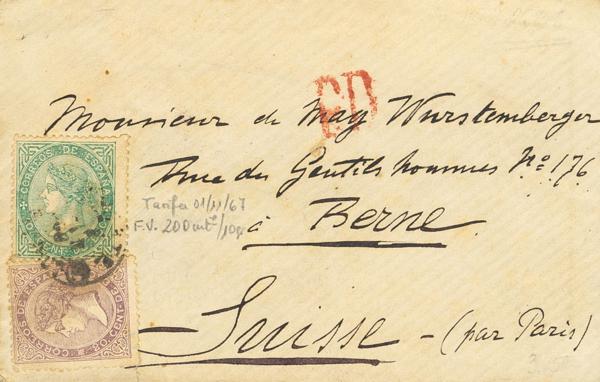 PD
Monsieur de May Wurstemberger
Rue des Gentils hommes No 176
à Berne
Suisse - (par Paris)
CORREOS DE ESPAÑA
Tarifa 01/11/67
F.V.
CORREOS DE ESPAÑA